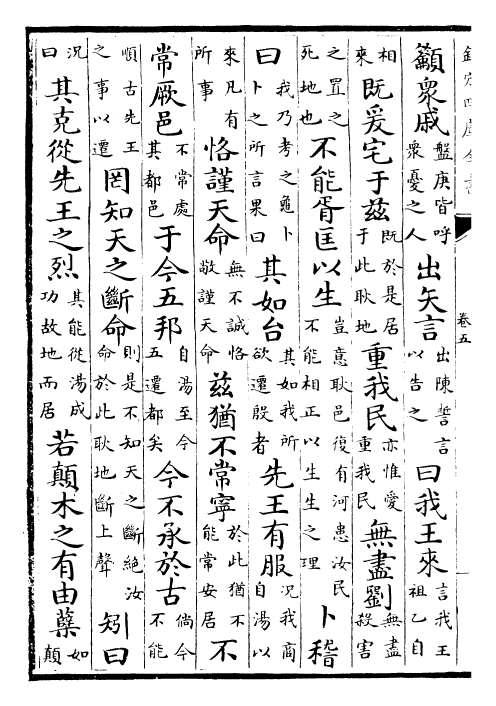 欽定四庫全書
卷五
籲衆戚盤庚皆呼衆憂之人出矢言出陳誓言以告之曰我王來言我王祖乙自
相來既爰宅于兹既於是居于此耿地重我民亦惟愛重我民無盡劉無盡殺害
之置之死地也不能胥匡以生豈意耿邑復有河患汝民不能相正以生生之理卜稽
曰我乃考之龜卜卜之所言果曰其如台其如我所欲遷殷者先王有服况我商自湯以
來凡有所事恪謹天命無不誠恪敬謹天命兹猶不常寧於此猶不能常安居不
常厥邑不常處其都邑于今五邦自湯至今五遷都矣今不承於古倘今不能
順古先王之事以遷罔知天之斷命則是不知天之斷絶汝命於此耿地斷上聲矧曰
况曰其克從先王之烈其能從湯成功故地而居若顛木之有由蘖如顛